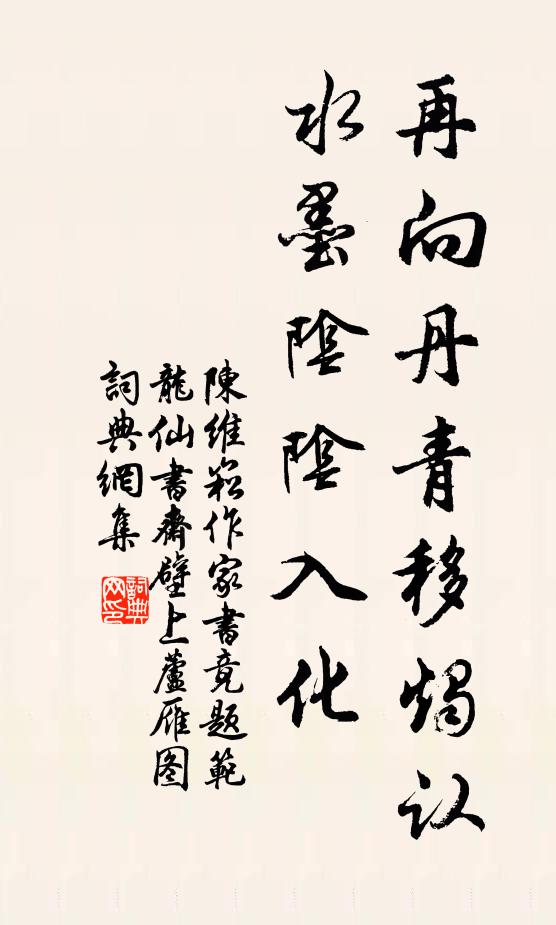 再向丹青移烛认
水墨陰陰入化
陳維崧作家書竟題範
龍仙書齋壁上蘆雁图
詞典網集
詞典
网印